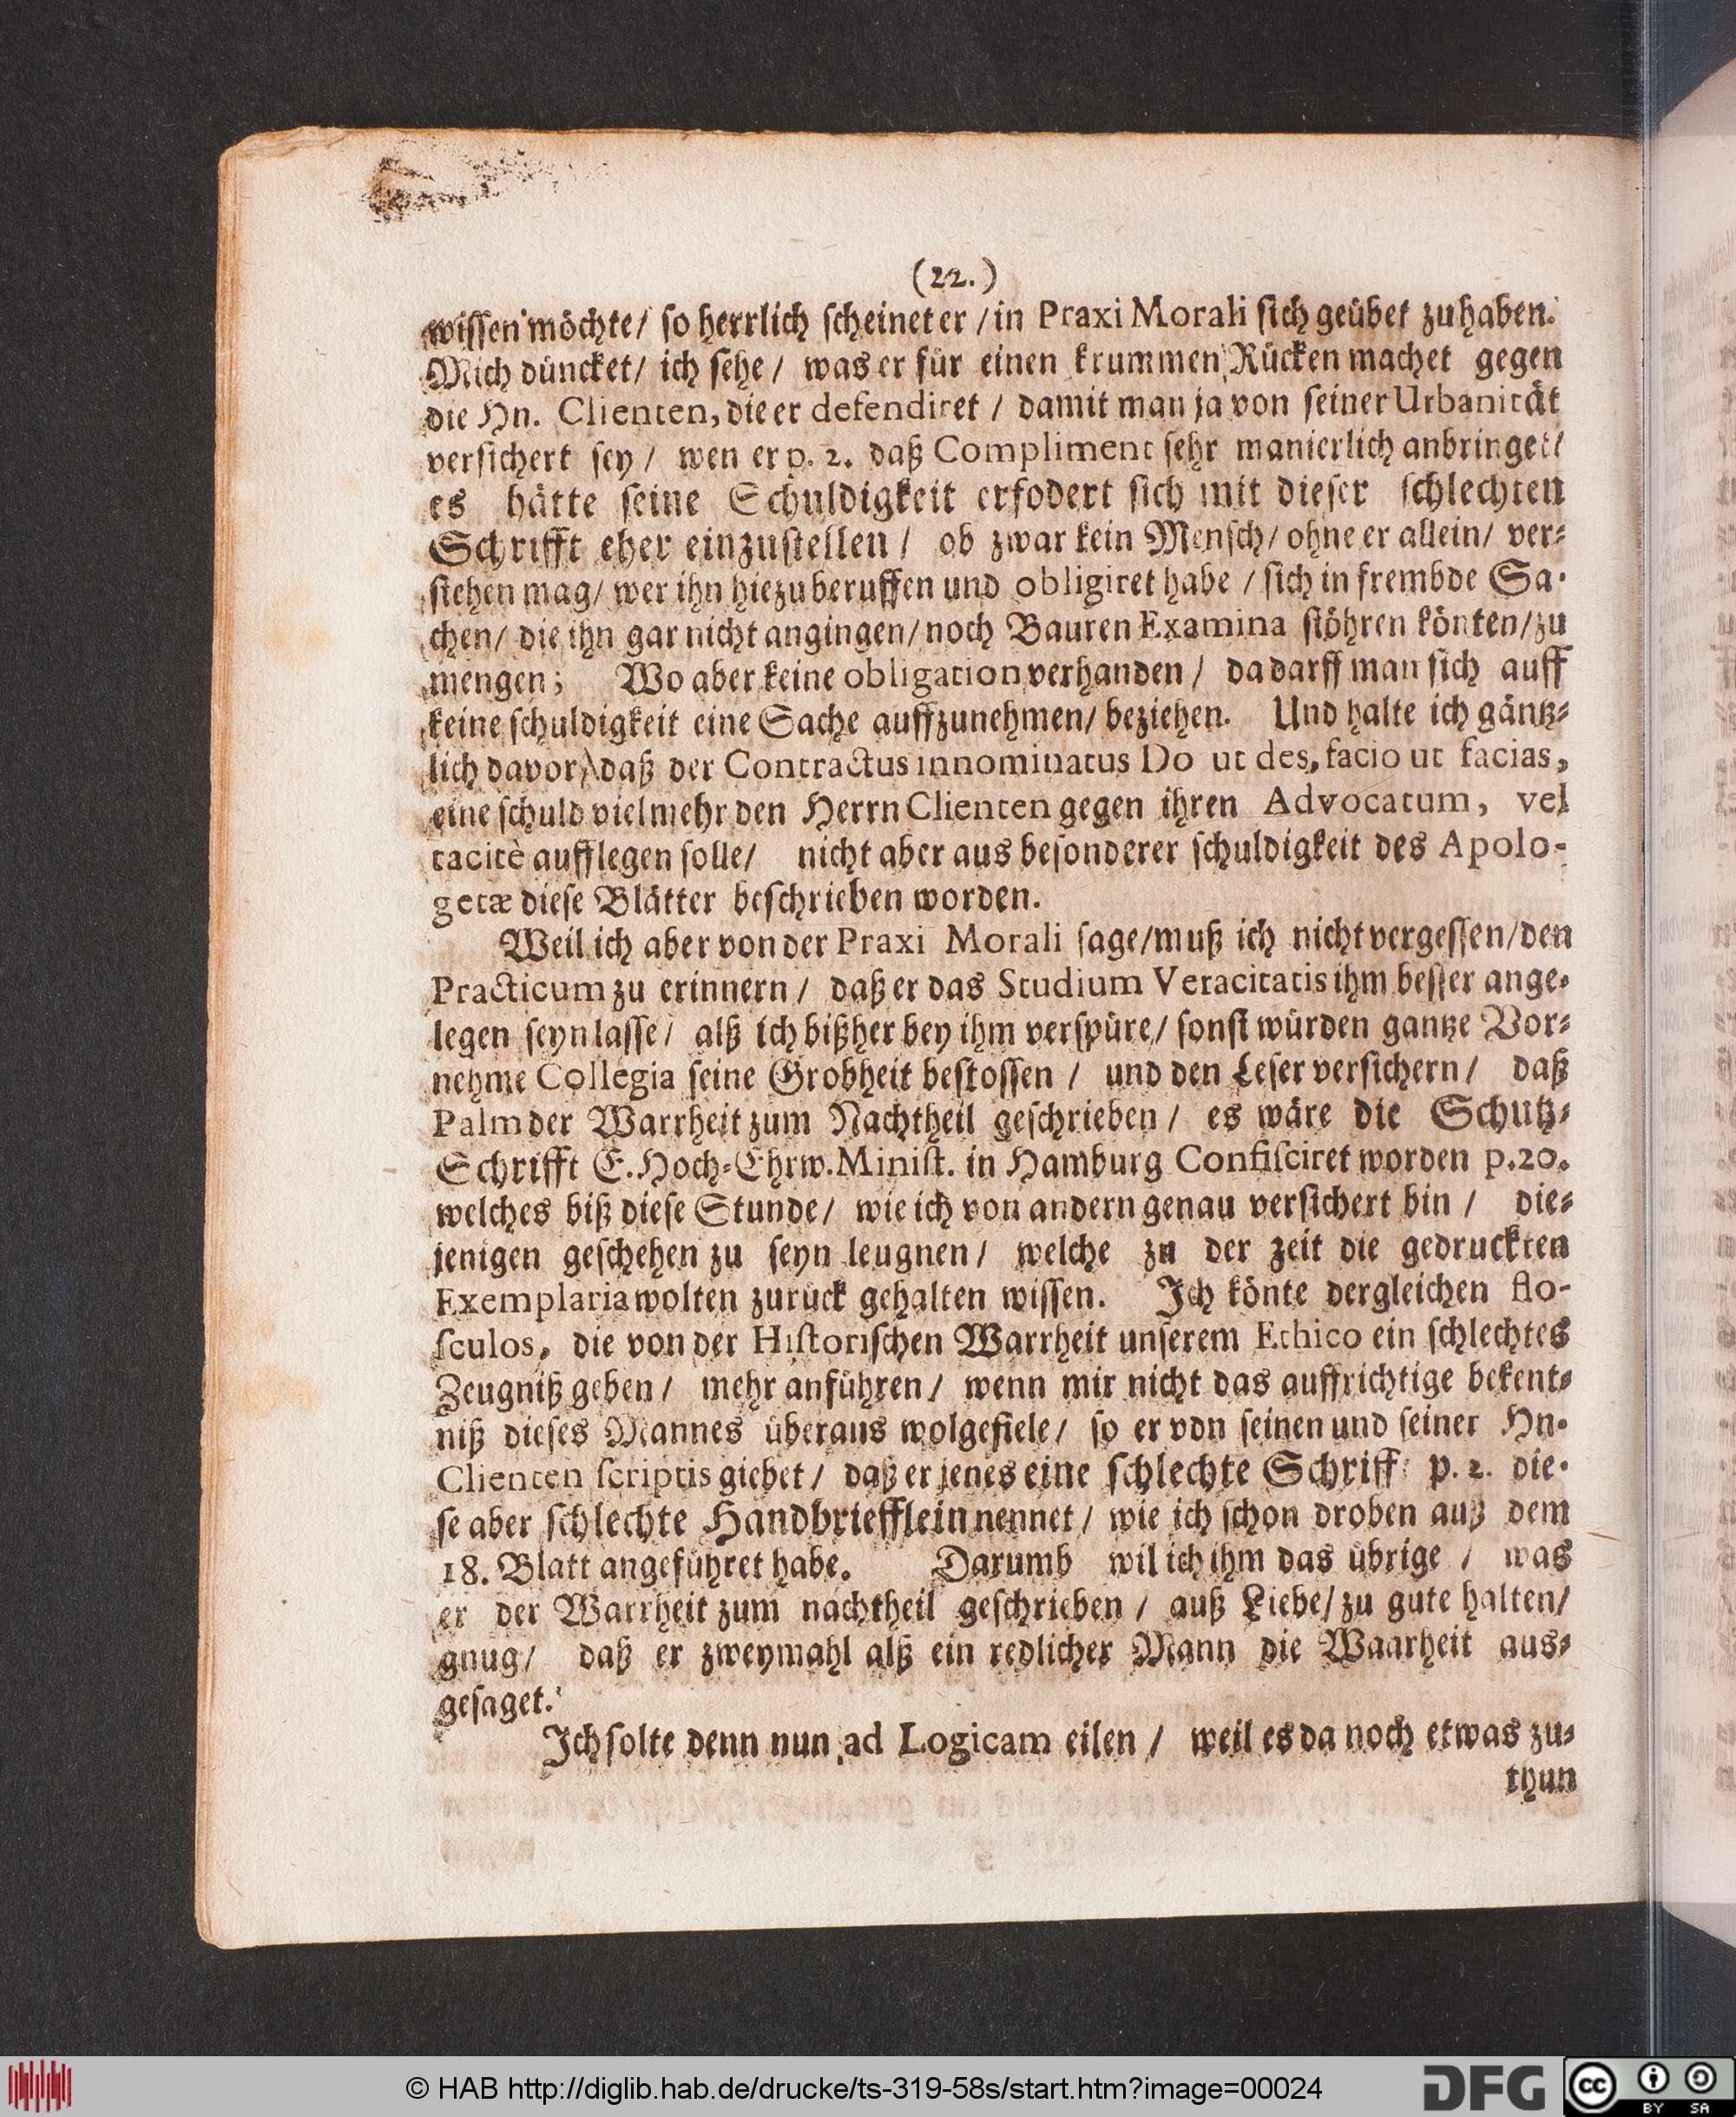 (22.)
wissen möchte/ so herrlich scheinet er / in Praxi Morali sich geübet zu haben.
Mich düncket/ ich sehe / was er für einen krummen Rücken machet gegen
die Hn. Clienten, die er defendiret / damit man ja von seiner Urbanität
versichert sey / wen er p. 2. daß Compliment sehr manierlich anbringet/
es hätte seine Schuldigkeit erfodert sich mit dieser schlechten
Schrifft eher einzustellen / ob zwar kein Mensch/ ohne er allein/ ver-
stehen mag/ wer ihn hiezu beruffen und obligiret habe / sich in frembde Sa-
chen/ die ihn gar nicht angingen/ noch Bauren Examina stöhren könten/ zu
mengen; Wo aber keine obligation verhanden / da darff man sich auff
keine schuldigkeit eine Sache auffzunehmen/ beziehen. Und halte ich gäntz-
lich davor/ daß der Contractus innominatus Do ut des, facio ut facias,
eine schuld vielmehr den Herrn Clienten gegen ihren Advocatum, vel
tacitè aufflegen solle/ nicht aber aus besonderer schuldigkeit des Apolo-
getæ diese Blätter beschrieben worden.
Weil ich aber von der Praxi Morali sage/ muß ich nicht vergessen/ den
Practicum zu erinnern / daß er das Studium Veracitatis ihm besser ange-
legen seyn lasse/ alß ich bißher bey ihm verspüre/ sonst würden gantze Vor-
nehme Collegia seine Grobheit bestossen / und den Leser versichern / daß
Palm der Warrheit zum Nachtheil geschrieben / es wäre die Schutz-
Schrifft E. Hoch-Ehrw. Minist. in Hamburg Confisciret worden p. 20.
welches biß diese Stunde/ wie ich von andern genau versichert bin / die-
jenigen geschehen zu seyn leugnen/ welche zu der zeit die gedruckten
Exemplaria wolten zurück gehalten wissen. Ich könte dergleichen flo-
sculos, die von der Historischen Warrheit unserem Ethico ein schlechtes
Zeugniß geben / mehr anführen / wenn mir nicht das auffrichtige bekent-
niß dieses Mannes überaus wolgefiele/ so er von seinen und seiner Hn.
Clienten scriptis giebet / daß er jenes eine schlechte Schrifft p. 2. die-
se aber schlechte Handbriefflein nennet / wie ich schon droben auß dem
18. Blatt angeführet habe. Darumb wil ich ihm das übrige / was
er der Warrheit zum nachtheil geschrieben / auß Liebe/ zu gute halten/
gnug/ daß er zweymahl alß ein redlicher Mann die Waarheit aus-
gesaget.
Ich solte denn nun ad Logicam eilen / weil es da noch etwas zu-
thun
© HAB http://diglib.hab.de/drucke/ts-319-58s/start.htm?image=00024
DFG
cc BY SA